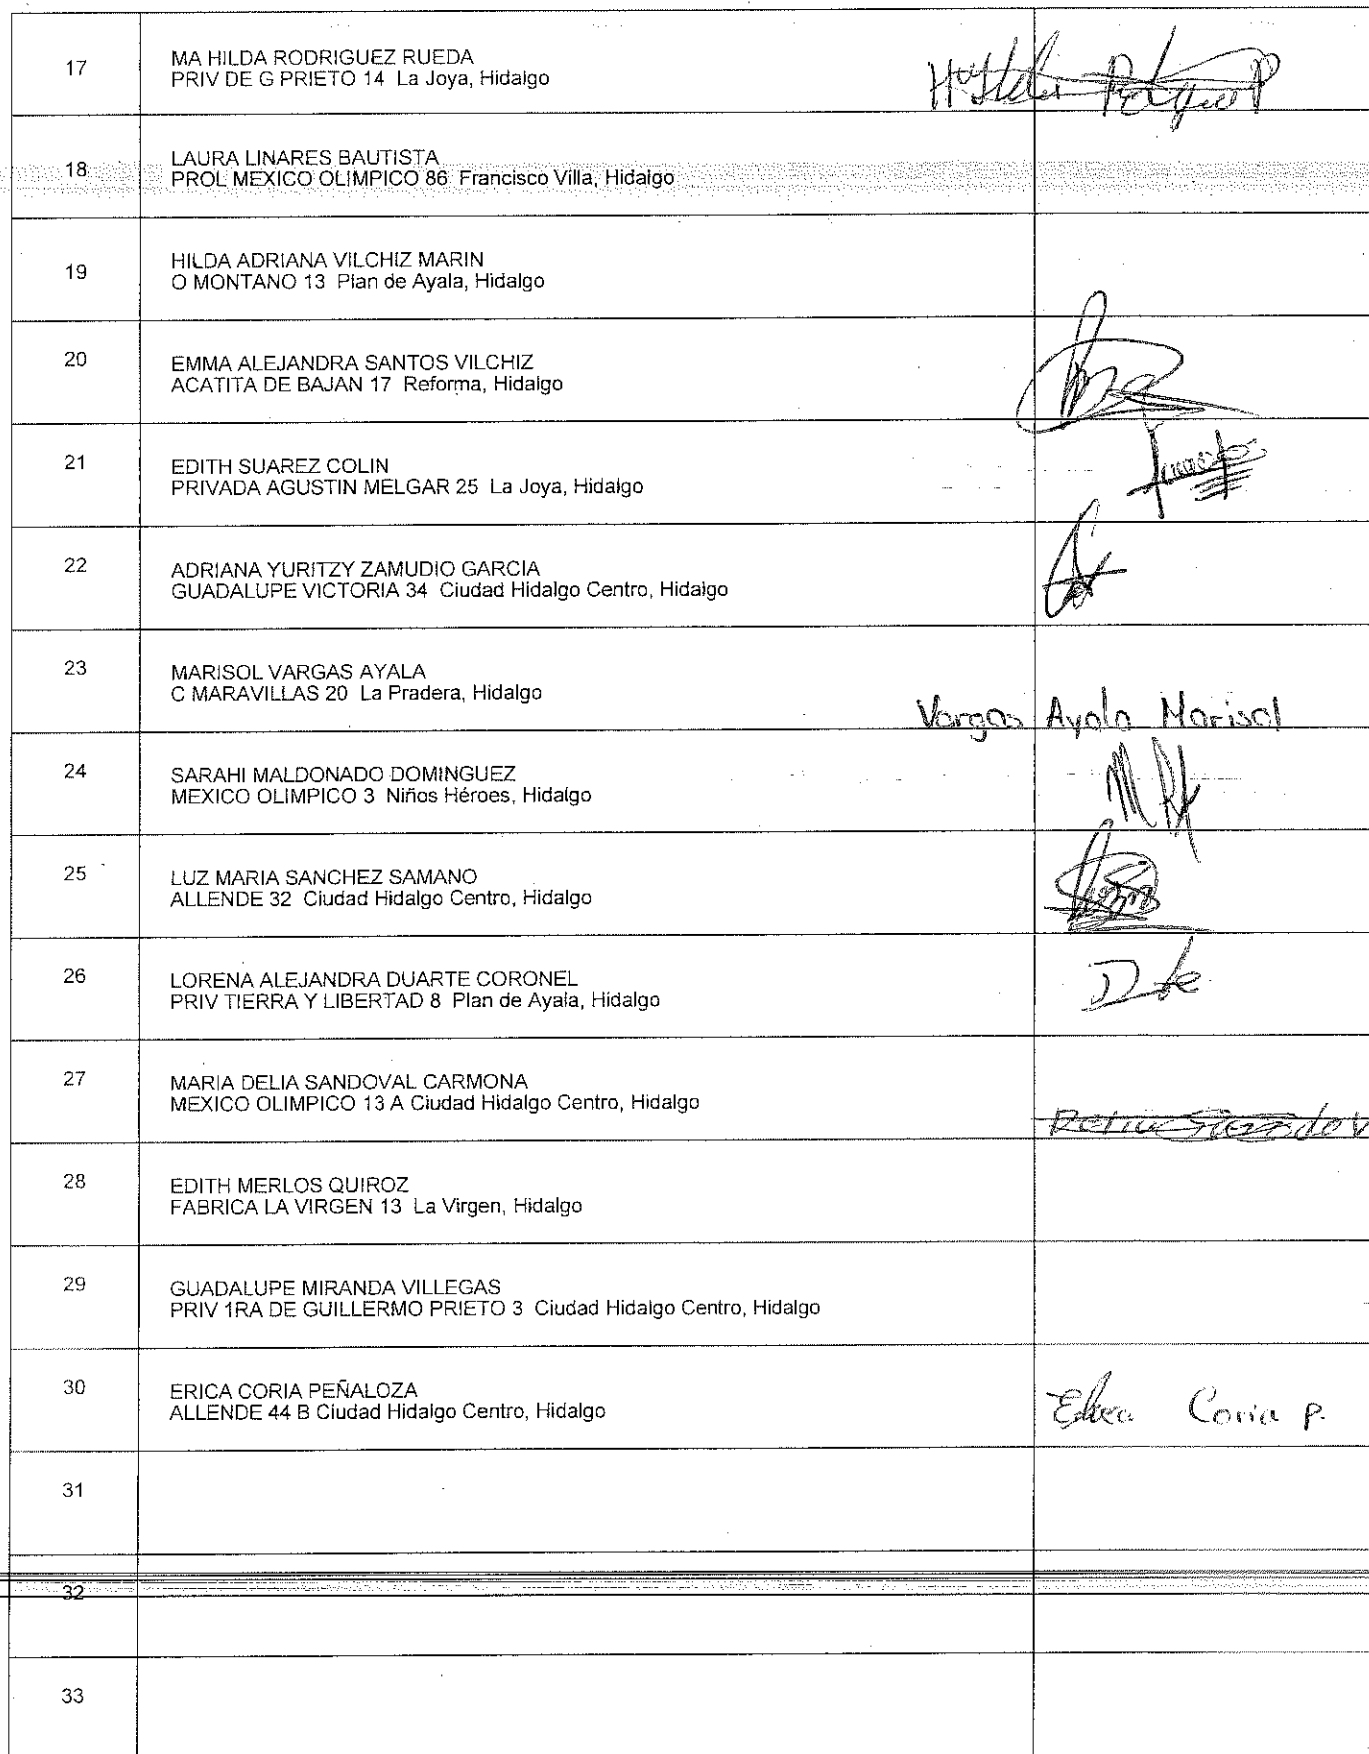 17
MA HILDA RODRIGUEZ RUEDA
PRIV DE G PRIETO 14 La Joya, Hidalgo
18
LAURA LINARES BAUTISTA
PROL MEXICO OLIMPICO 86 Francisco Villa, Hidalgo
19
HILDA ADRIANA VILCHIZ MARIN
O MONTANO 13 Plan de Ayala, Hidalgo
20
EMMA ALEJANDRA SANTOS VILCHIZ
ACATITA DE BAJAN 17 Reforma, Hidalgo
21
EDITH SUAREZ COLIN
PRIVADA AGUSTIN MELGAR 25 La Joya, Hidalgo
22
ADRIANA YURITZY ZAMUDIO GARCIA
GUADALUPE VICTORIA 34 Ciudad Hidalgo Centro, Hidalgo
23
MARISOL VARGAS AYALA
C MARAVILLAS 20 La Pradera, Hidalgo
Vargas Ayala Marisol
24
SARAHI MALDONADO DOMINGUEZ
MEXICO OLIMPICO 3 Niños Héroes, Hidalgo
25
LUZ MARIA SANCHEZ SAMANO
ALLENDE 32 Ciudad Hidalgo Centro, Hidalgo
26
LORENA ALEJANDRA DUARTE CORONEL
PRIV TIERRA Y LIBERTAD 8 Plan de Ayala, Hidalgo
27
MARIA DELIA SANDOVAL CARMONA
MEXICO OLIMPICO 13 A Ciudad Hidalgo Centro, Hidalgo
28
EDITH MERLOS QUIROZ
FABRICA LA VIRGEN 13 La Virgen, Hidalgo
29
GUADALUPE MIRANDA VILLEGAS
PRIV 1RA DE GUILLERMO PRIETO 3 Ciudad Hidalgo Centro, Hidalgo
30
ERICA CORIA PEÑALOZA
ALLENDE 44 B Ciudad Hidalgo Centro, Hidalgo
Coria P.
31
32
33